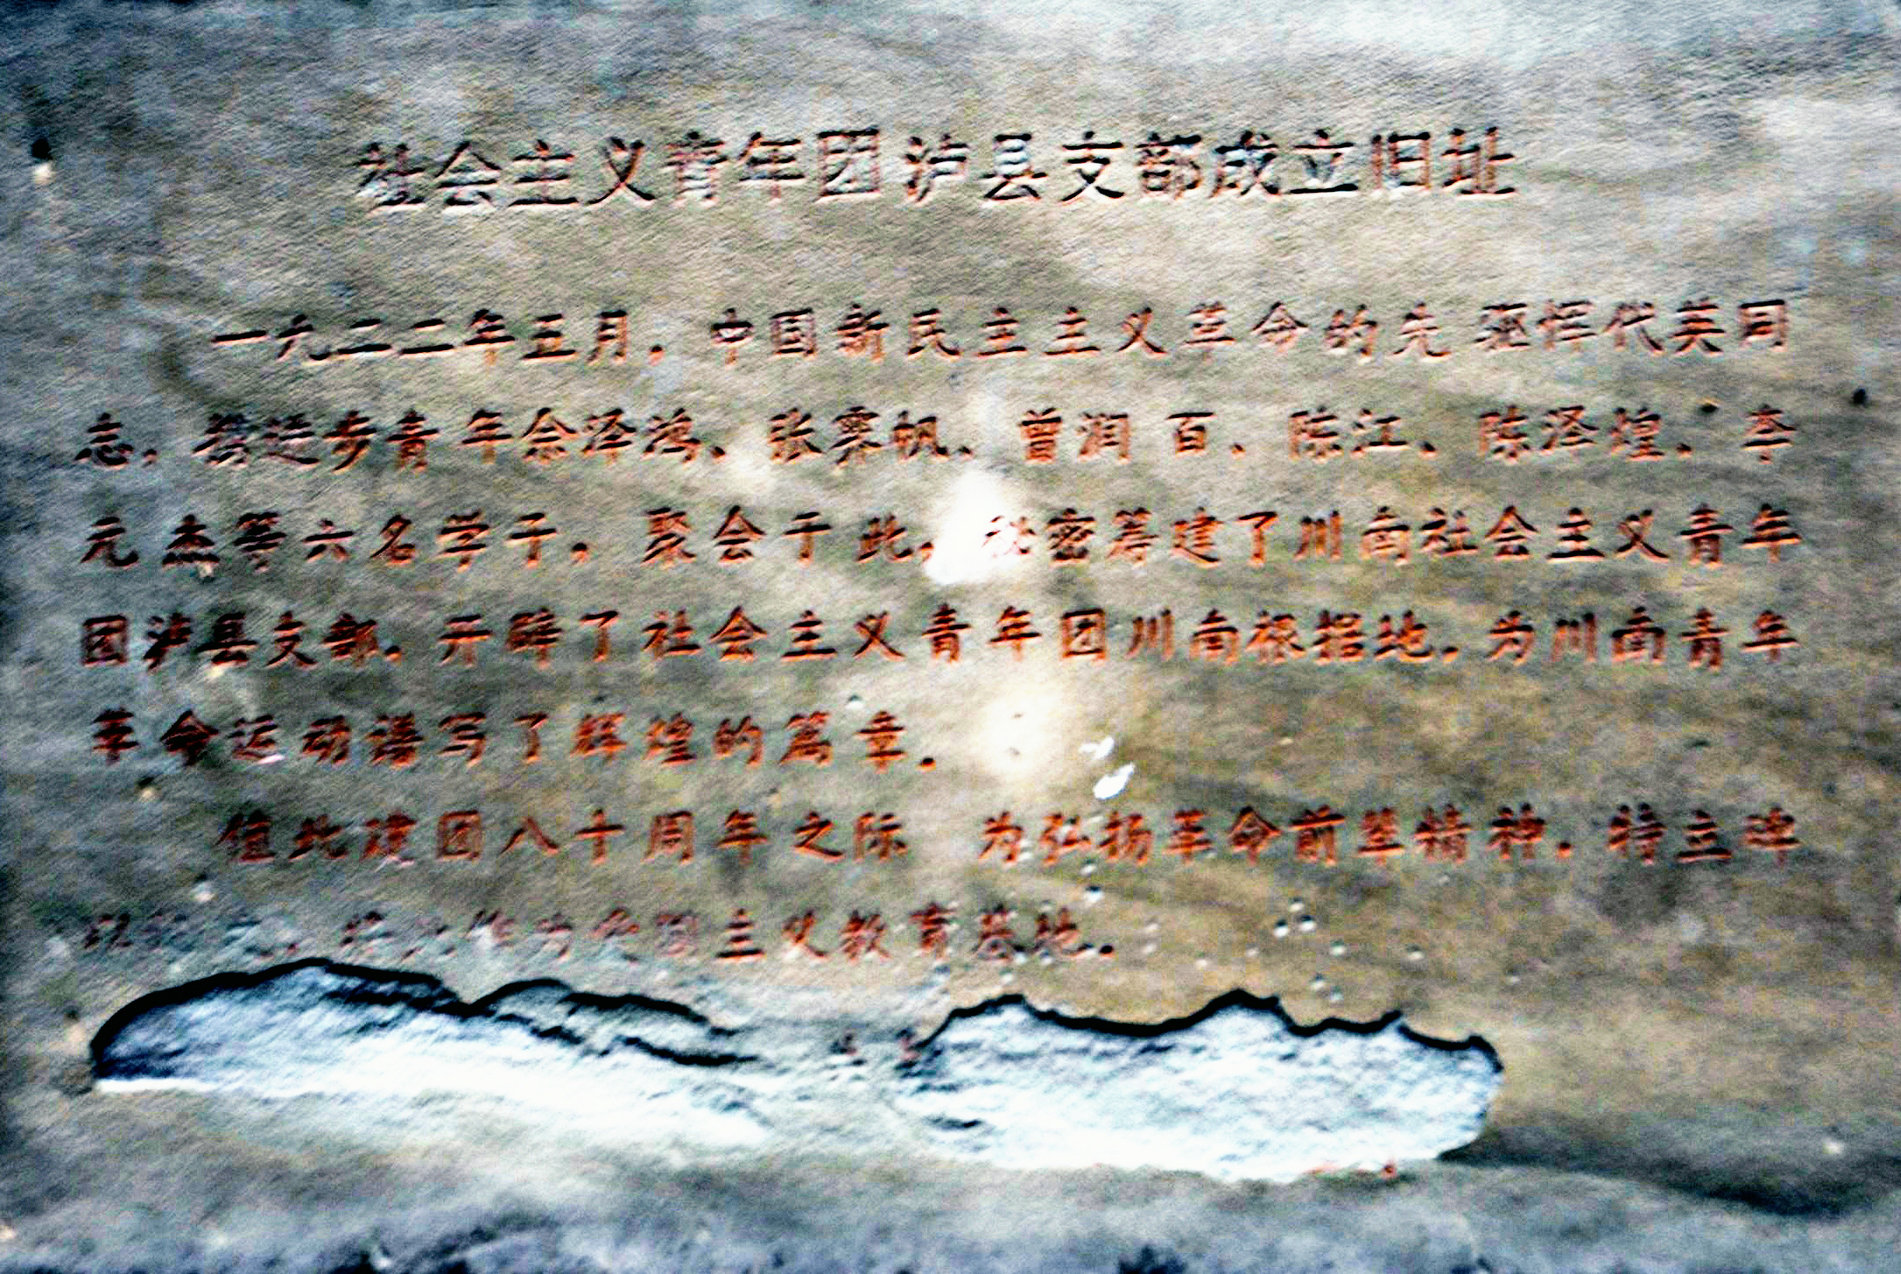 社会主义青年团泸县支部成立旧址
一九二二年五月，中国新民主主义革命的先驱恽代英同
志，携进步青年余泽鸿、张霁帆、曾润百、陈江、陈泽煌、李
元杰等六名学子，聚会于此，秘密筹建了川南社会主义青年
团泸县支部，开辟了社会主义青年团川南根据地，为川南青年
革命运动谱写了辉煌的篇章。
值此建团八十周年之际 为弘扬革命前辈精神，特立碑
以 主义教育基地。